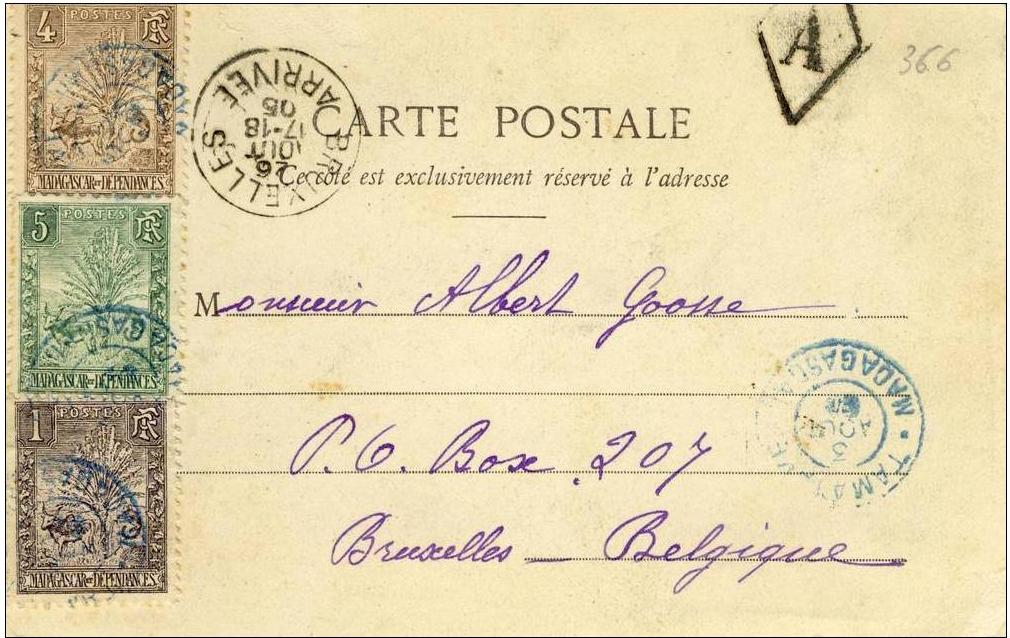 4 POSTES RF
MADAGASCAR ET DÉPENDANCES
5 POSTES RF
MADAGASCAR ET DÉPENDANCES
1 POSTES RF
MADAGASCAR ET DÉPENDANCES
BRUXELLES
26
AOUT
17-18
05
ARRIVÉE
A
366
CARTE POSTALE
Ce côté est exclusivement réservé à l'adresse
Monsieur Albert Goosse
P. O. Box 207
Bruxelles — Belgique
MADAGASCAR
TAMATAVE
3
AOUT